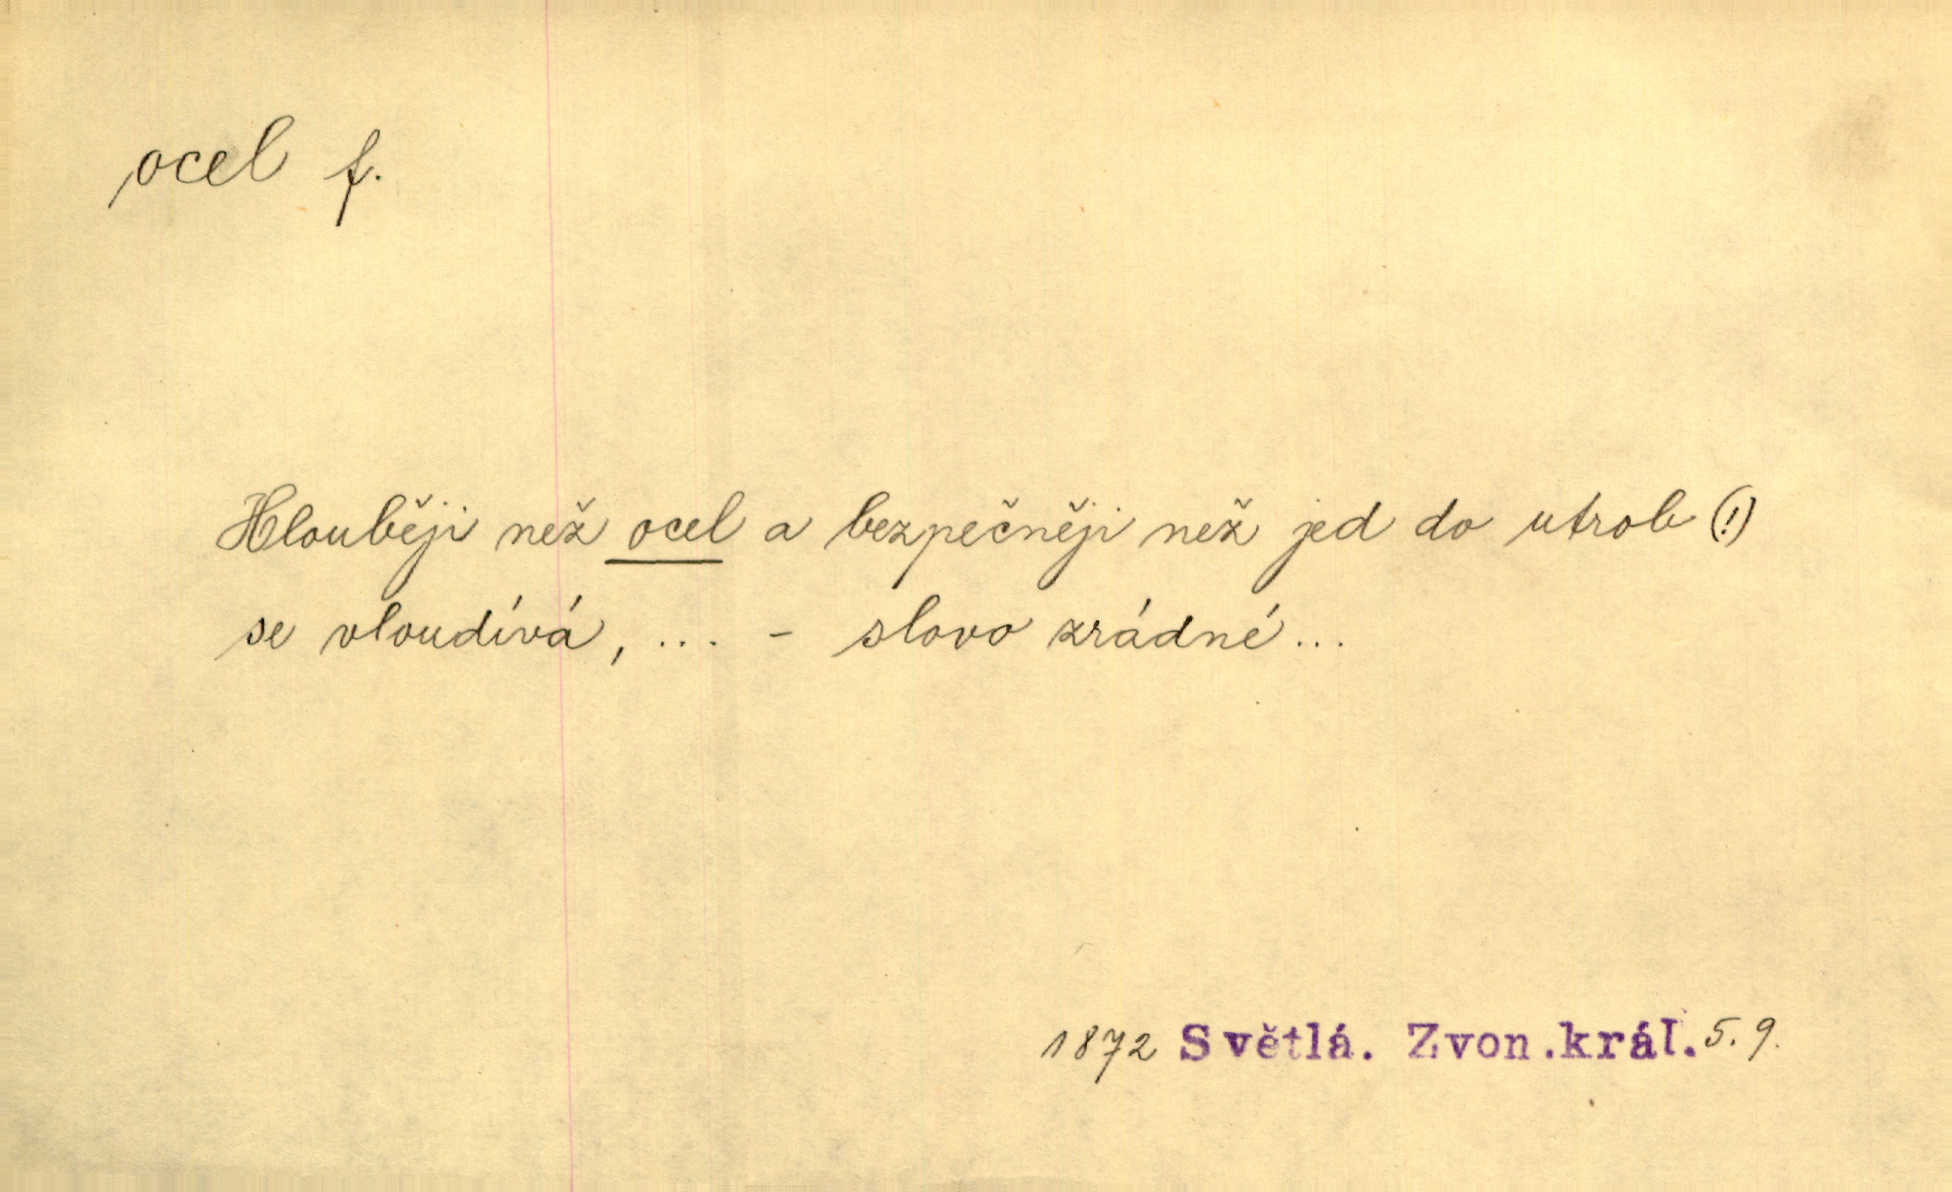 ocel f.
Hlouběji než ocel a bezpečněji než jed do utrob (!)
se vloudívá, ... - slovo zrádné...
1872 Světlá. Zvon.král. 5. 9.